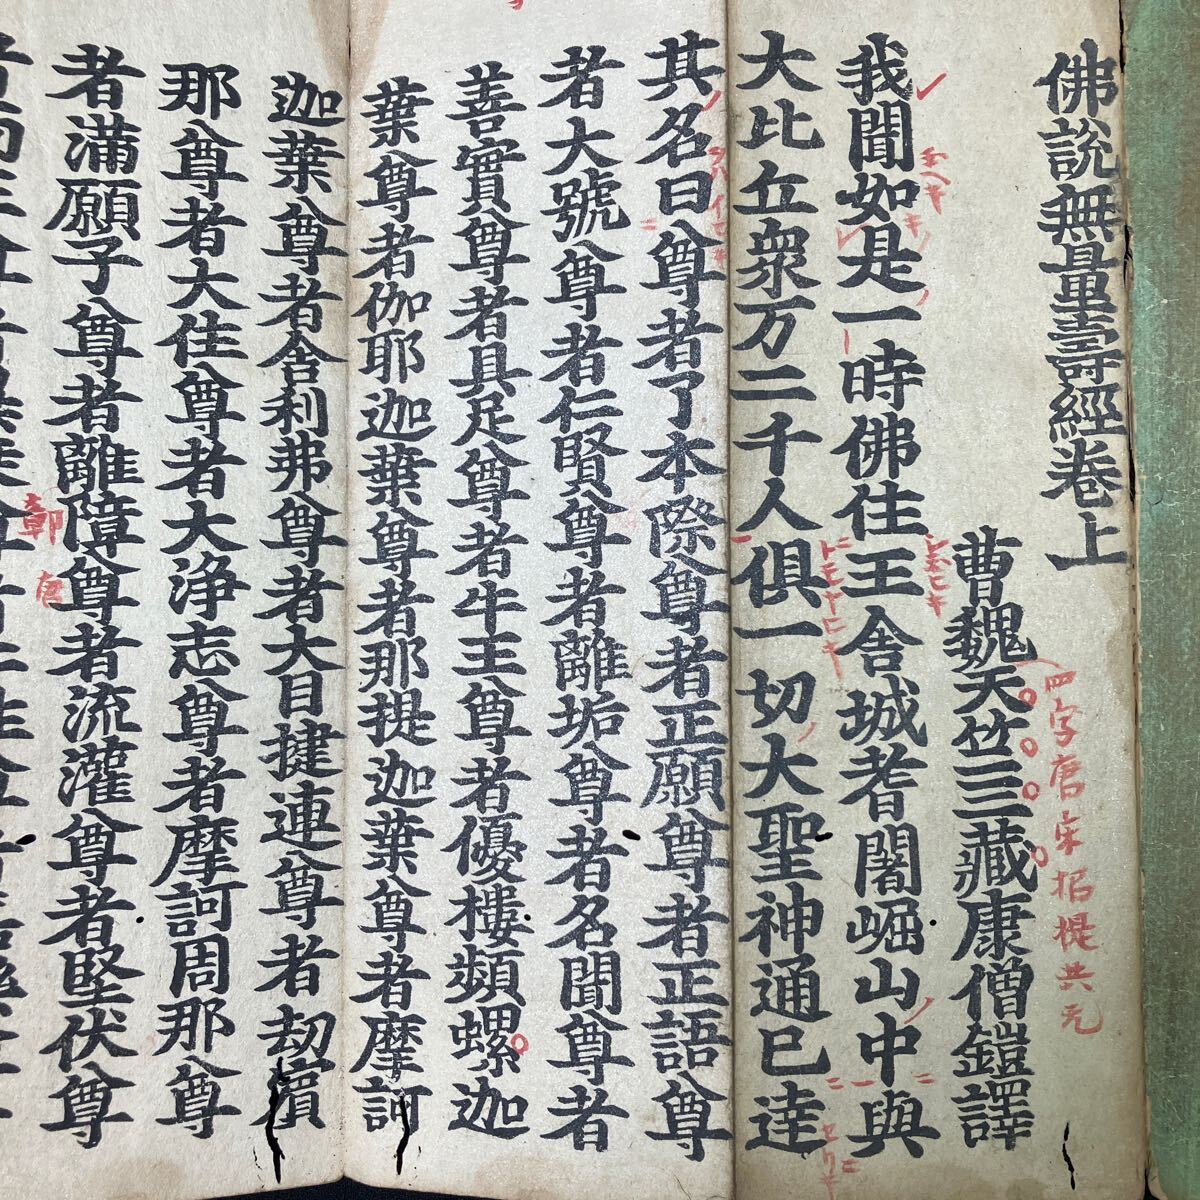 佛說無量壽經卷上
曹魏天竺三藏康僧鎧譯
四字唐宋招提共无
我聞如是一時佛住王舍城耆闍崛山中與
大比丘衆万二千人俱一切大聖神通已達
其名曰尊者了本際尊者正願尊者正語尊
者大號尊者仁賢尊者離垢尊者名聞尊者
善實尊者具足尊者牛王尊者優樓頻螺迦
葉尊者伽耶迦葉尊者那提迦葉尊者摩訶
迦葉尊者舍利弗尊者大目揵連尊者劫賓
那尊者大住尊者大浄志尊者摩訶周那尊
者滿願子尊者離障尊者流灌尊者堅伏尊